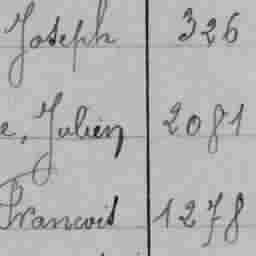 Joseph 326
e, Julien 2081
François 1278